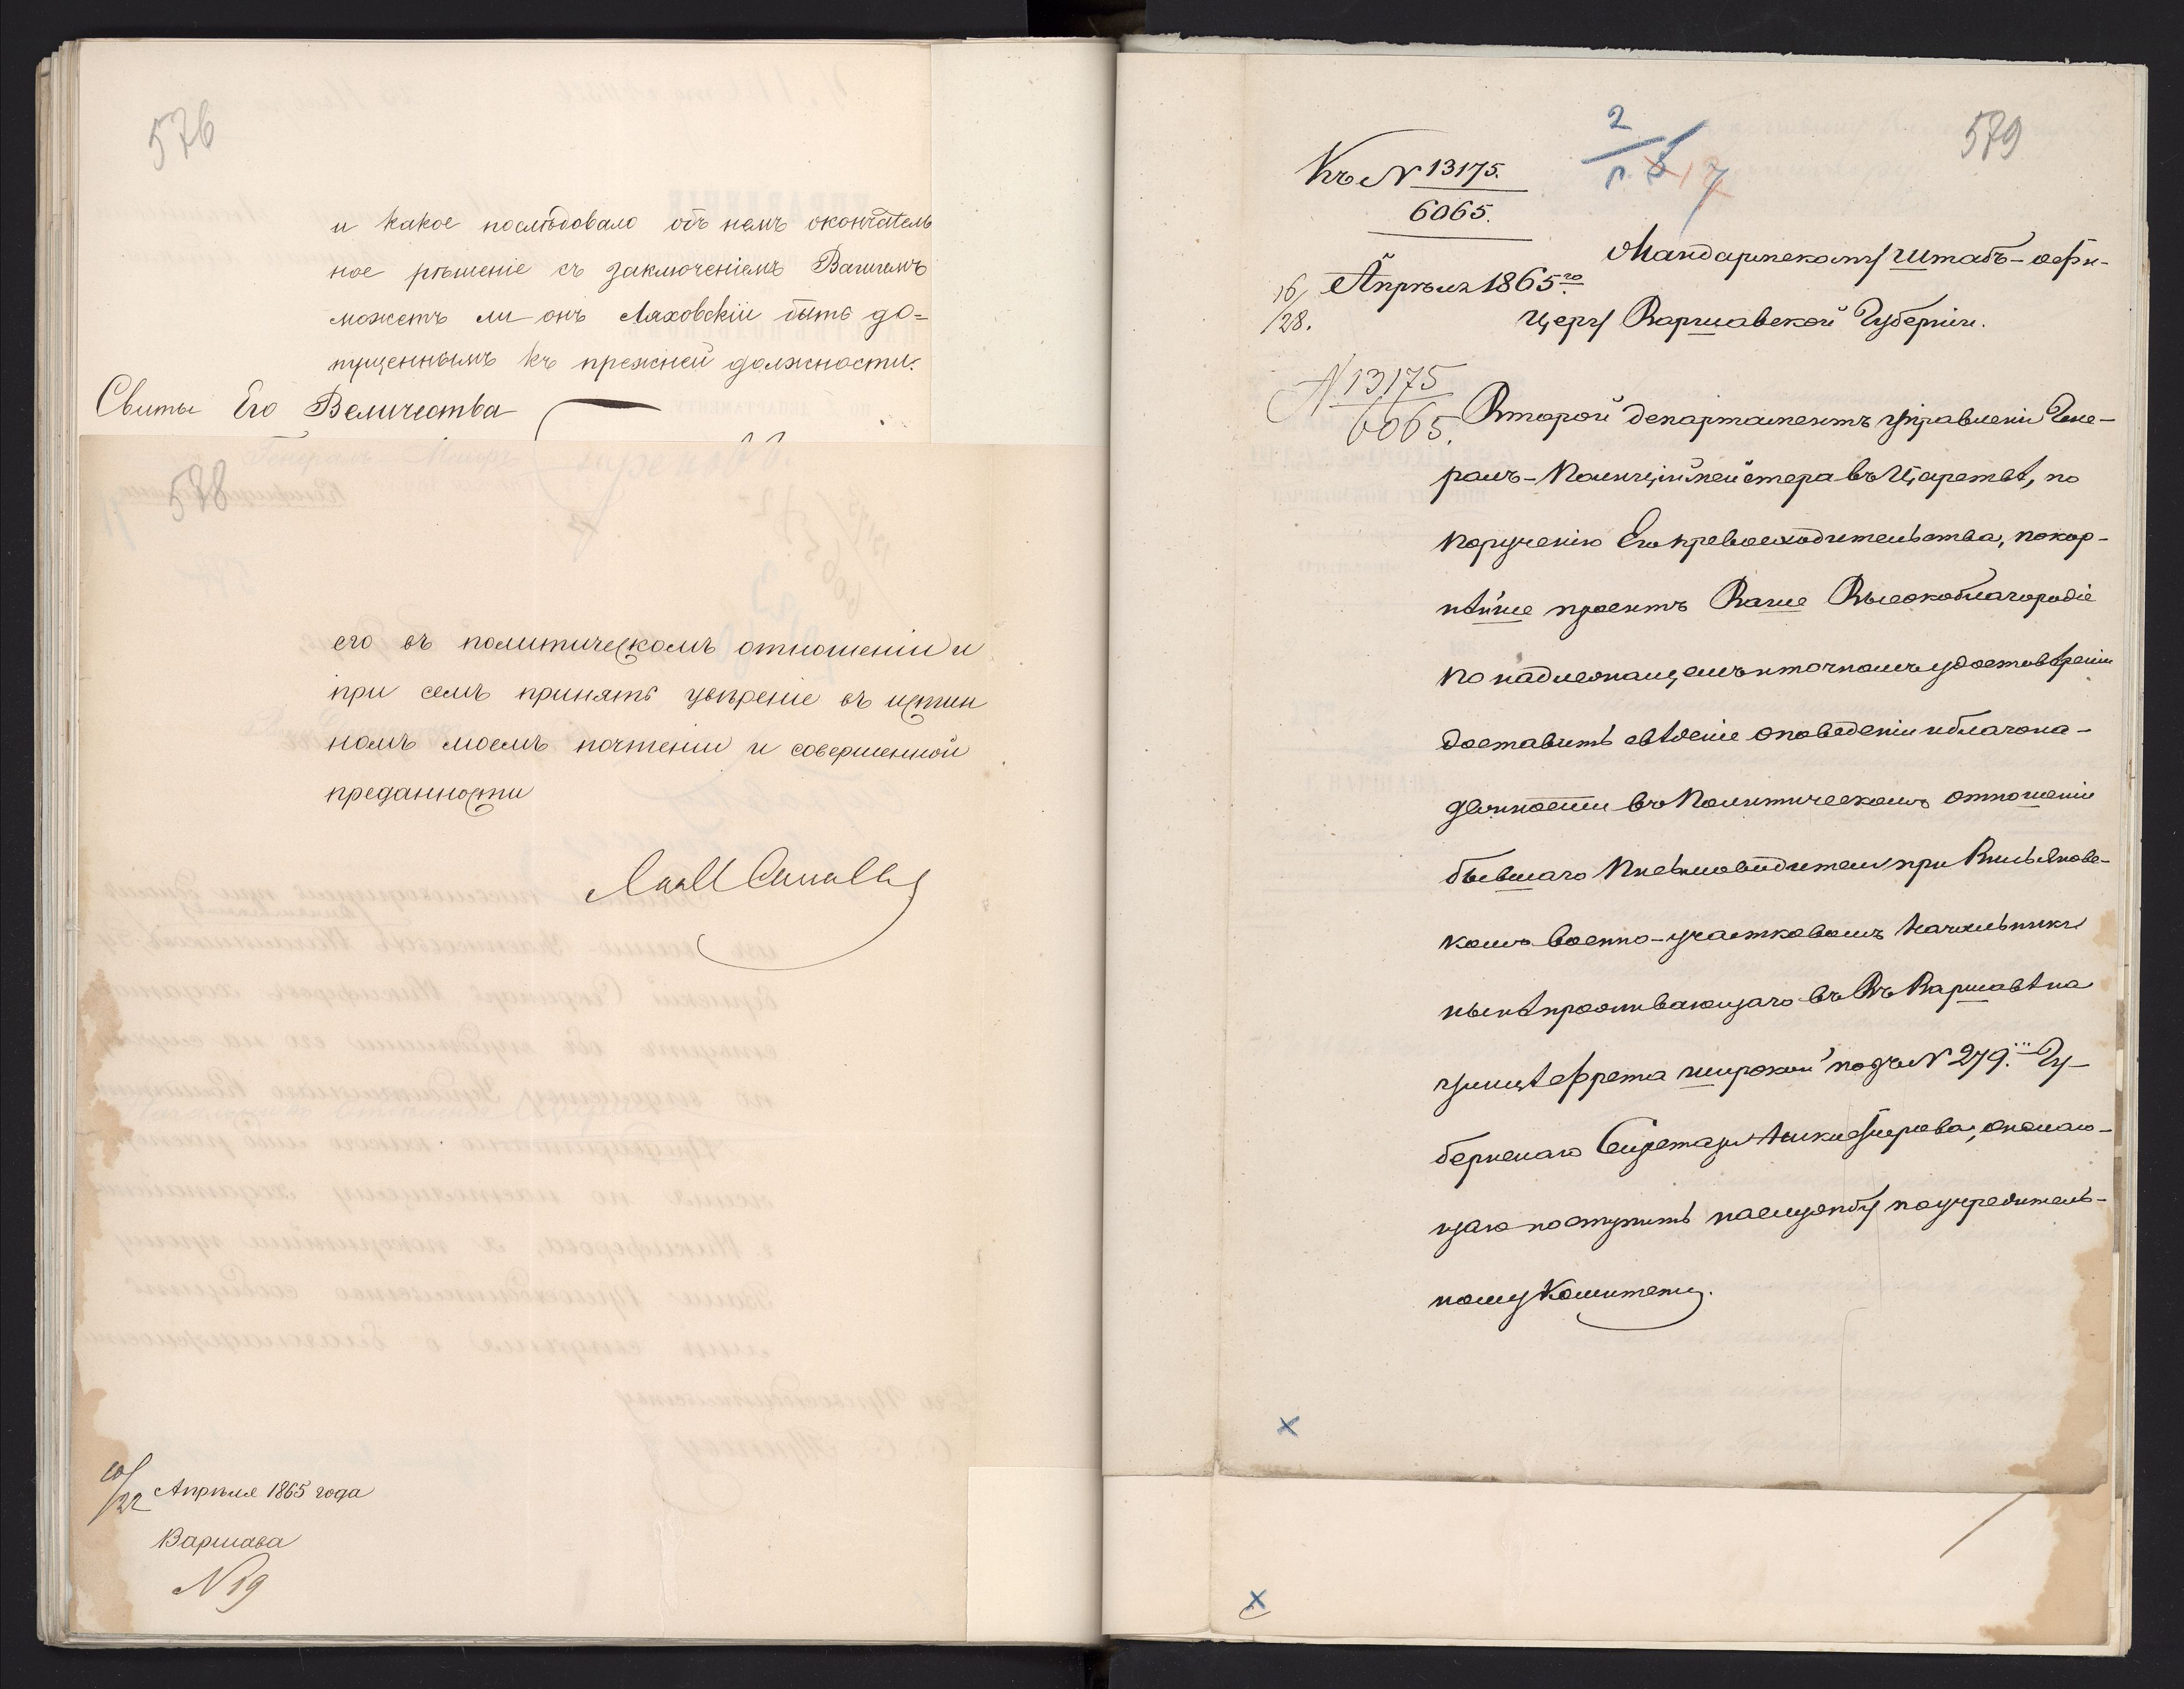 576
и какое послѣдовало объ немъ окончатель
ное рѣшеніе съ заключеніемъ Вашимъ
можетъ ли онъ Ляховскій быть до=
пущеннымъ къ прежней должности.
Свиты Его Величества
578
его въ политическомъ отношеніи и
при семъ принять увѣреніе въ истин
номъ моемъ почтеніи и совершенной
преданности
10/22 Апрѣля 1865 года
Варшава
N 19
579
2
Къ N 13175.
6065.
Жандармскому Штабъ-офи-
16/28. Апрѣля 1865го
церу Варшавской Губерніи.
N 13175
6065.
Второй департаментъ управленія Гене-
ралъ-Полиціймейстера въ Царствѣ, по
порученію Его превосходительства, покор-
нѣйше проситъ Ваше Высокоблагородіе
по надлежащемъ и точномъ удостовѣреніи
доставить свѣденіе о поведеніи и благона-
дежности въ Политическомъ отношеніи
бывшаго Письмоводителя при
комъ Военно-участковомъ Начальникѣ
нынѣ проживающаго въ Варшавѣ на
улицѣ Фрета широкой подъ N 279. Гу-
бернскаго Секретаря Никифорова, желаю-
щаго поступить на службу по учредитель-
ному Комитету.